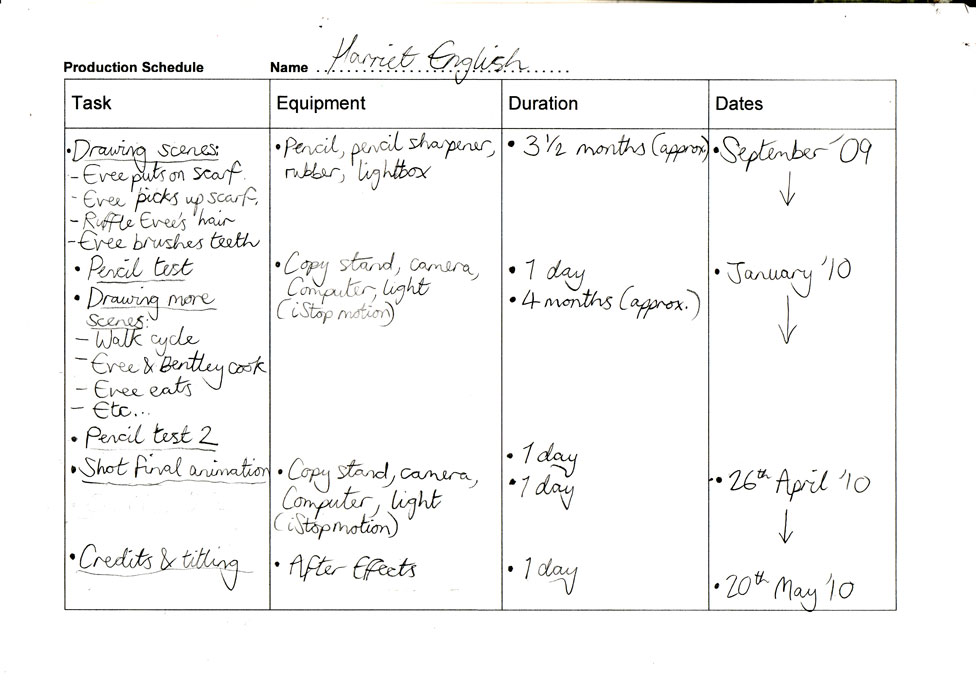 Production Schedule Name Harriet English
Task Equipment Duration Dates
• Drawing scenes:
- Evee puts on scarf.
- Evee picks up scarf.
- Ruffle Evee's hair
- Evee brushes teeth
• Pencil test
• Drawing more
scenes:
- Walk cycle
- Evee & Bentley cook
- Evee eats
- Etc...
• Pencil test 2
• Shot final animation
• Credits & titling
• Pencil, pencil sharpener,
rubber, lightbox
• Copy stand, camera,
Computer, light
(iStop motion)
• Copy stand, camera,
Computer, light
(iStopmotion)
• After Effects
• 3 1/2 months (approx)
• 1 day
• 4 months (approx.)
• 1 day
• 1 day
• 1 day
• September '09
• January '10
• 26th April '10
• 20th May '10